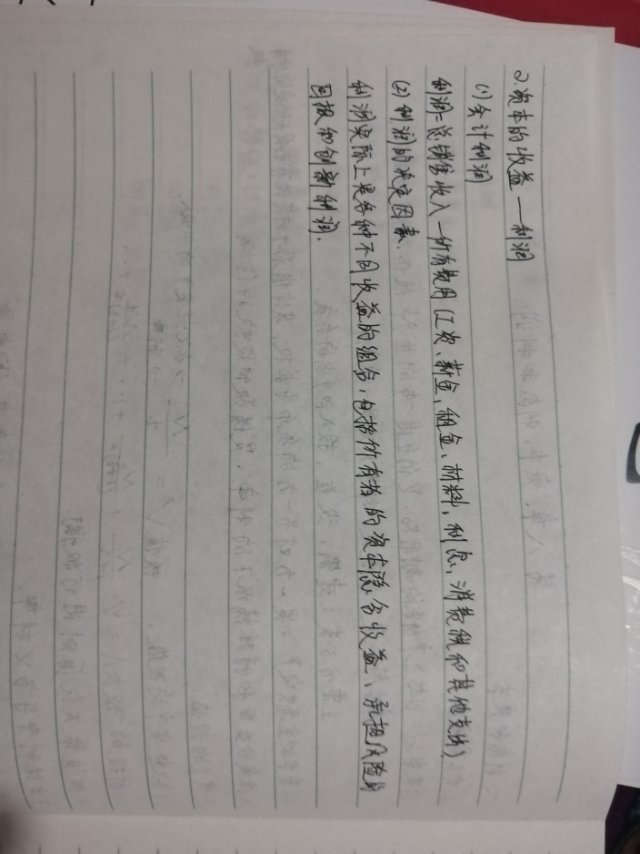 2.资本的收益——利润
(1)会计利润
利润=总销售收入-所有费用(工资、薪金、租金、材料、利息、消费税和其他支出)
(2)利润的决定因素
利润实际上是各种不同收益的组合,包括所有者的资本隐含收益、承担风险的
回报和创新利润.